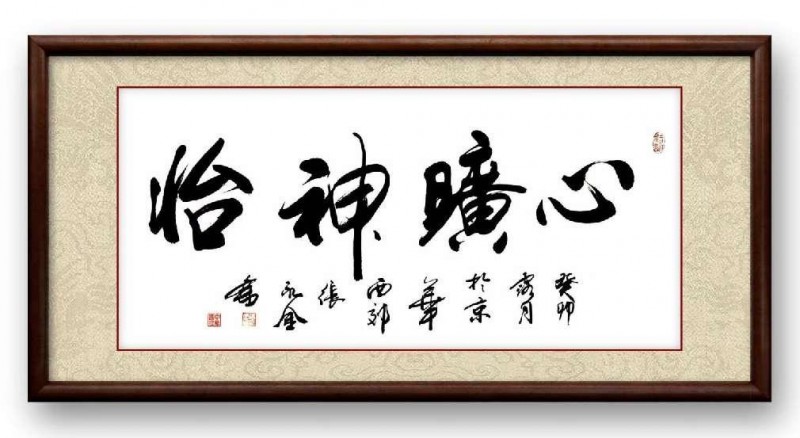 心曠神怡
癸卯
月
於京
華
西郊
張
永金